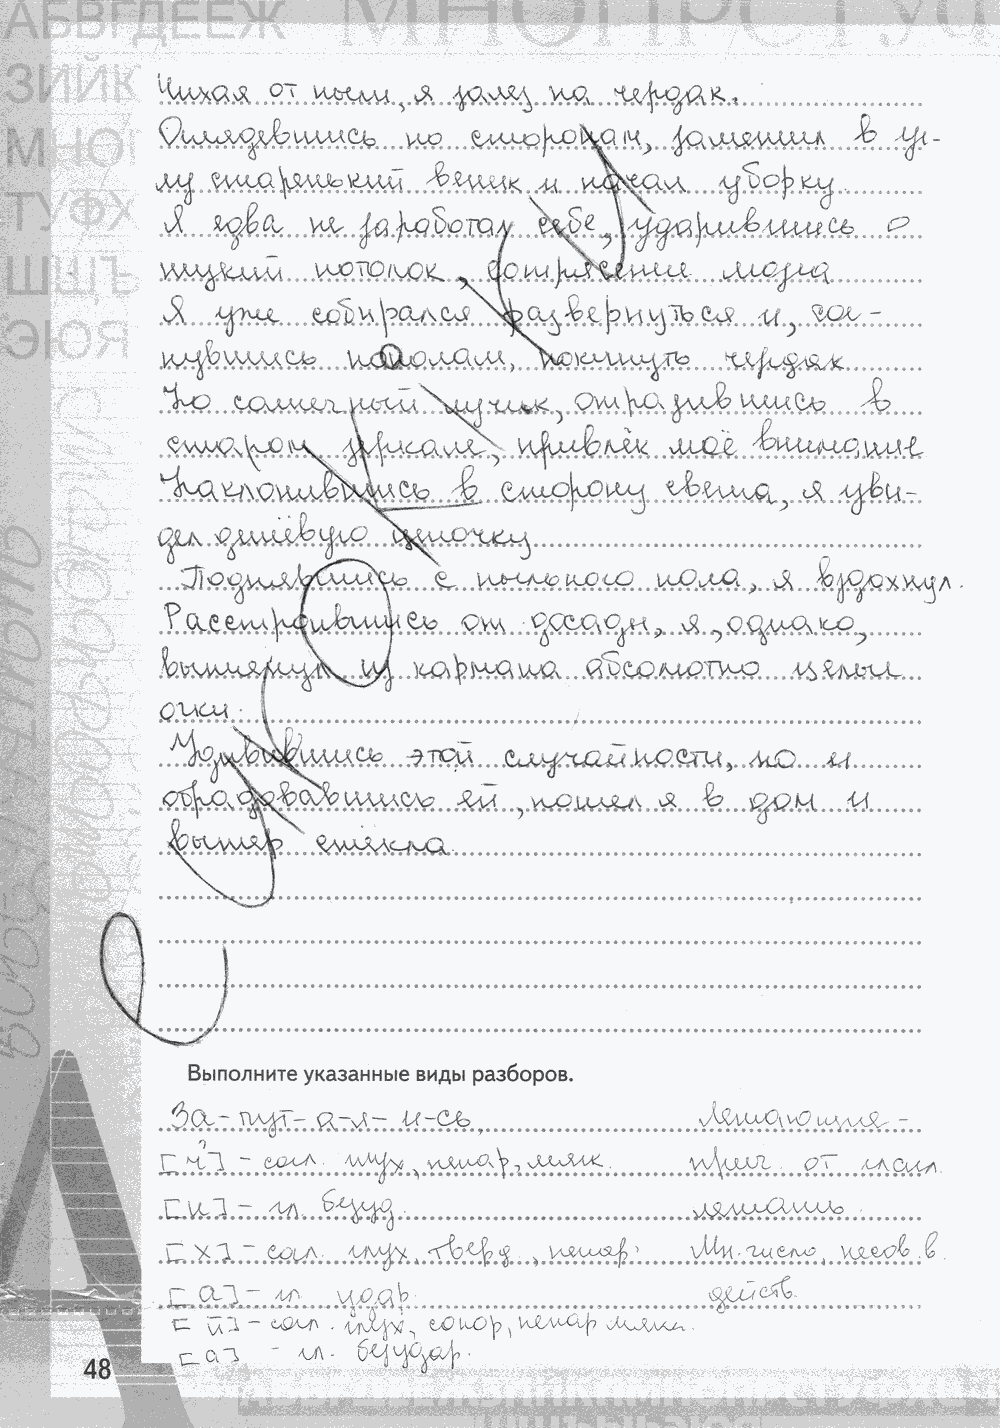 Чихая от пыли, я залез на чердак.
Оглядевшись по сторонам, заметил в уг-
лу старенький веник и начал уборку.
Я едва не заработал себе, ударившись о
низкий потолок, сотрясение мозга
Я уже собирался развернуться и, сог-
нувшись пополам, покинуть чердак
Но солнечный лучик, отразившись в
старом зеркале, привлёк моё внимание
Наклонившись в сторону света, я уви-
дел дешёвую цепочку
Поднявшись с пыльного пола, я вздохнул.
Расстроившись от досады, я, однако,
вытянул из кармана абсолютно целые
очки.
Удивившись этой случайности, но и
обрадовавшись ей, пошел я в дом и
вытер стёкла.
Выполните указанные виды разборов.
За-пут-а-л-и-сь, Летающие -
[ч'] - согл. глух, непар, мягк. прич. от глагл.
[и] - гл. безуд. летать.
[х] - согл. глух, тверд, непар. Мн. число, несов. в.
[а] - гл. удар. действ.
[й] - согл. глух, сонор, непар мягк.
[а] - гл. безудар.
48
АБВГДЕЕЖ
ЗИЙК
МНО
ТУФХ
ШЩЪ
ЭЮЯ